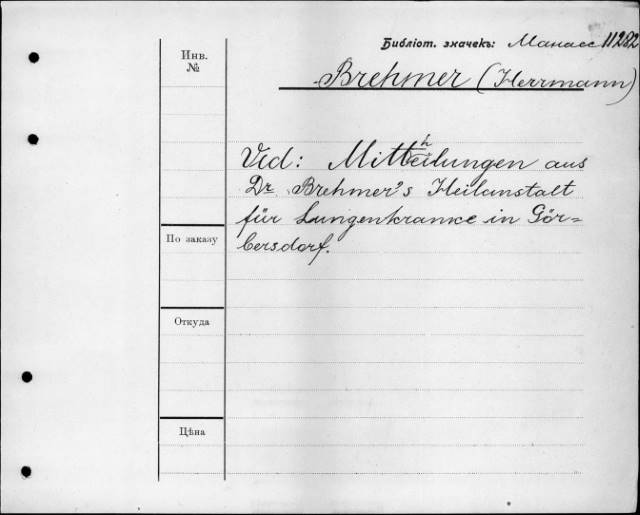 Библіот. значекъ: Манасс 11282
Инв.
№
Brehmer (Herrmann)
Vid: Mittheilungen aus
Dr. Brehmer's Heilanstalt
für Lungenkranke in Gör=
bersdorf.
По заказу
Откуда
Цѣна